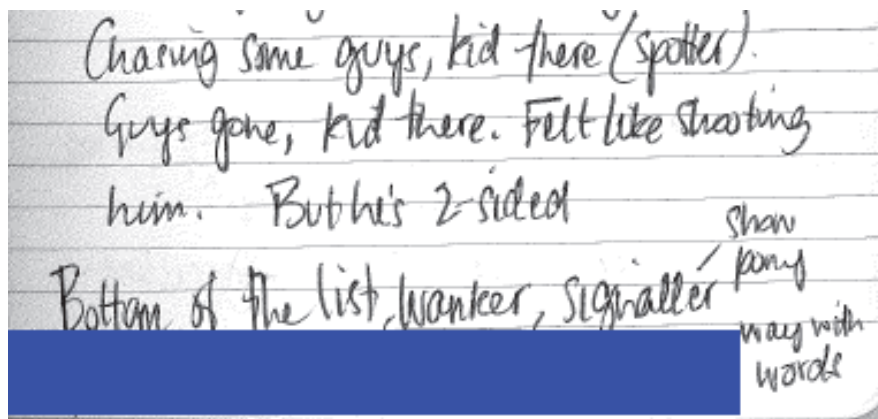 Chasing some guys, kid there (spotter).
Guys gone, kid there. Felt like shooting
him. But he's 2-sided
Bottom of the list, wanker, signaller / show
pony
way with
words